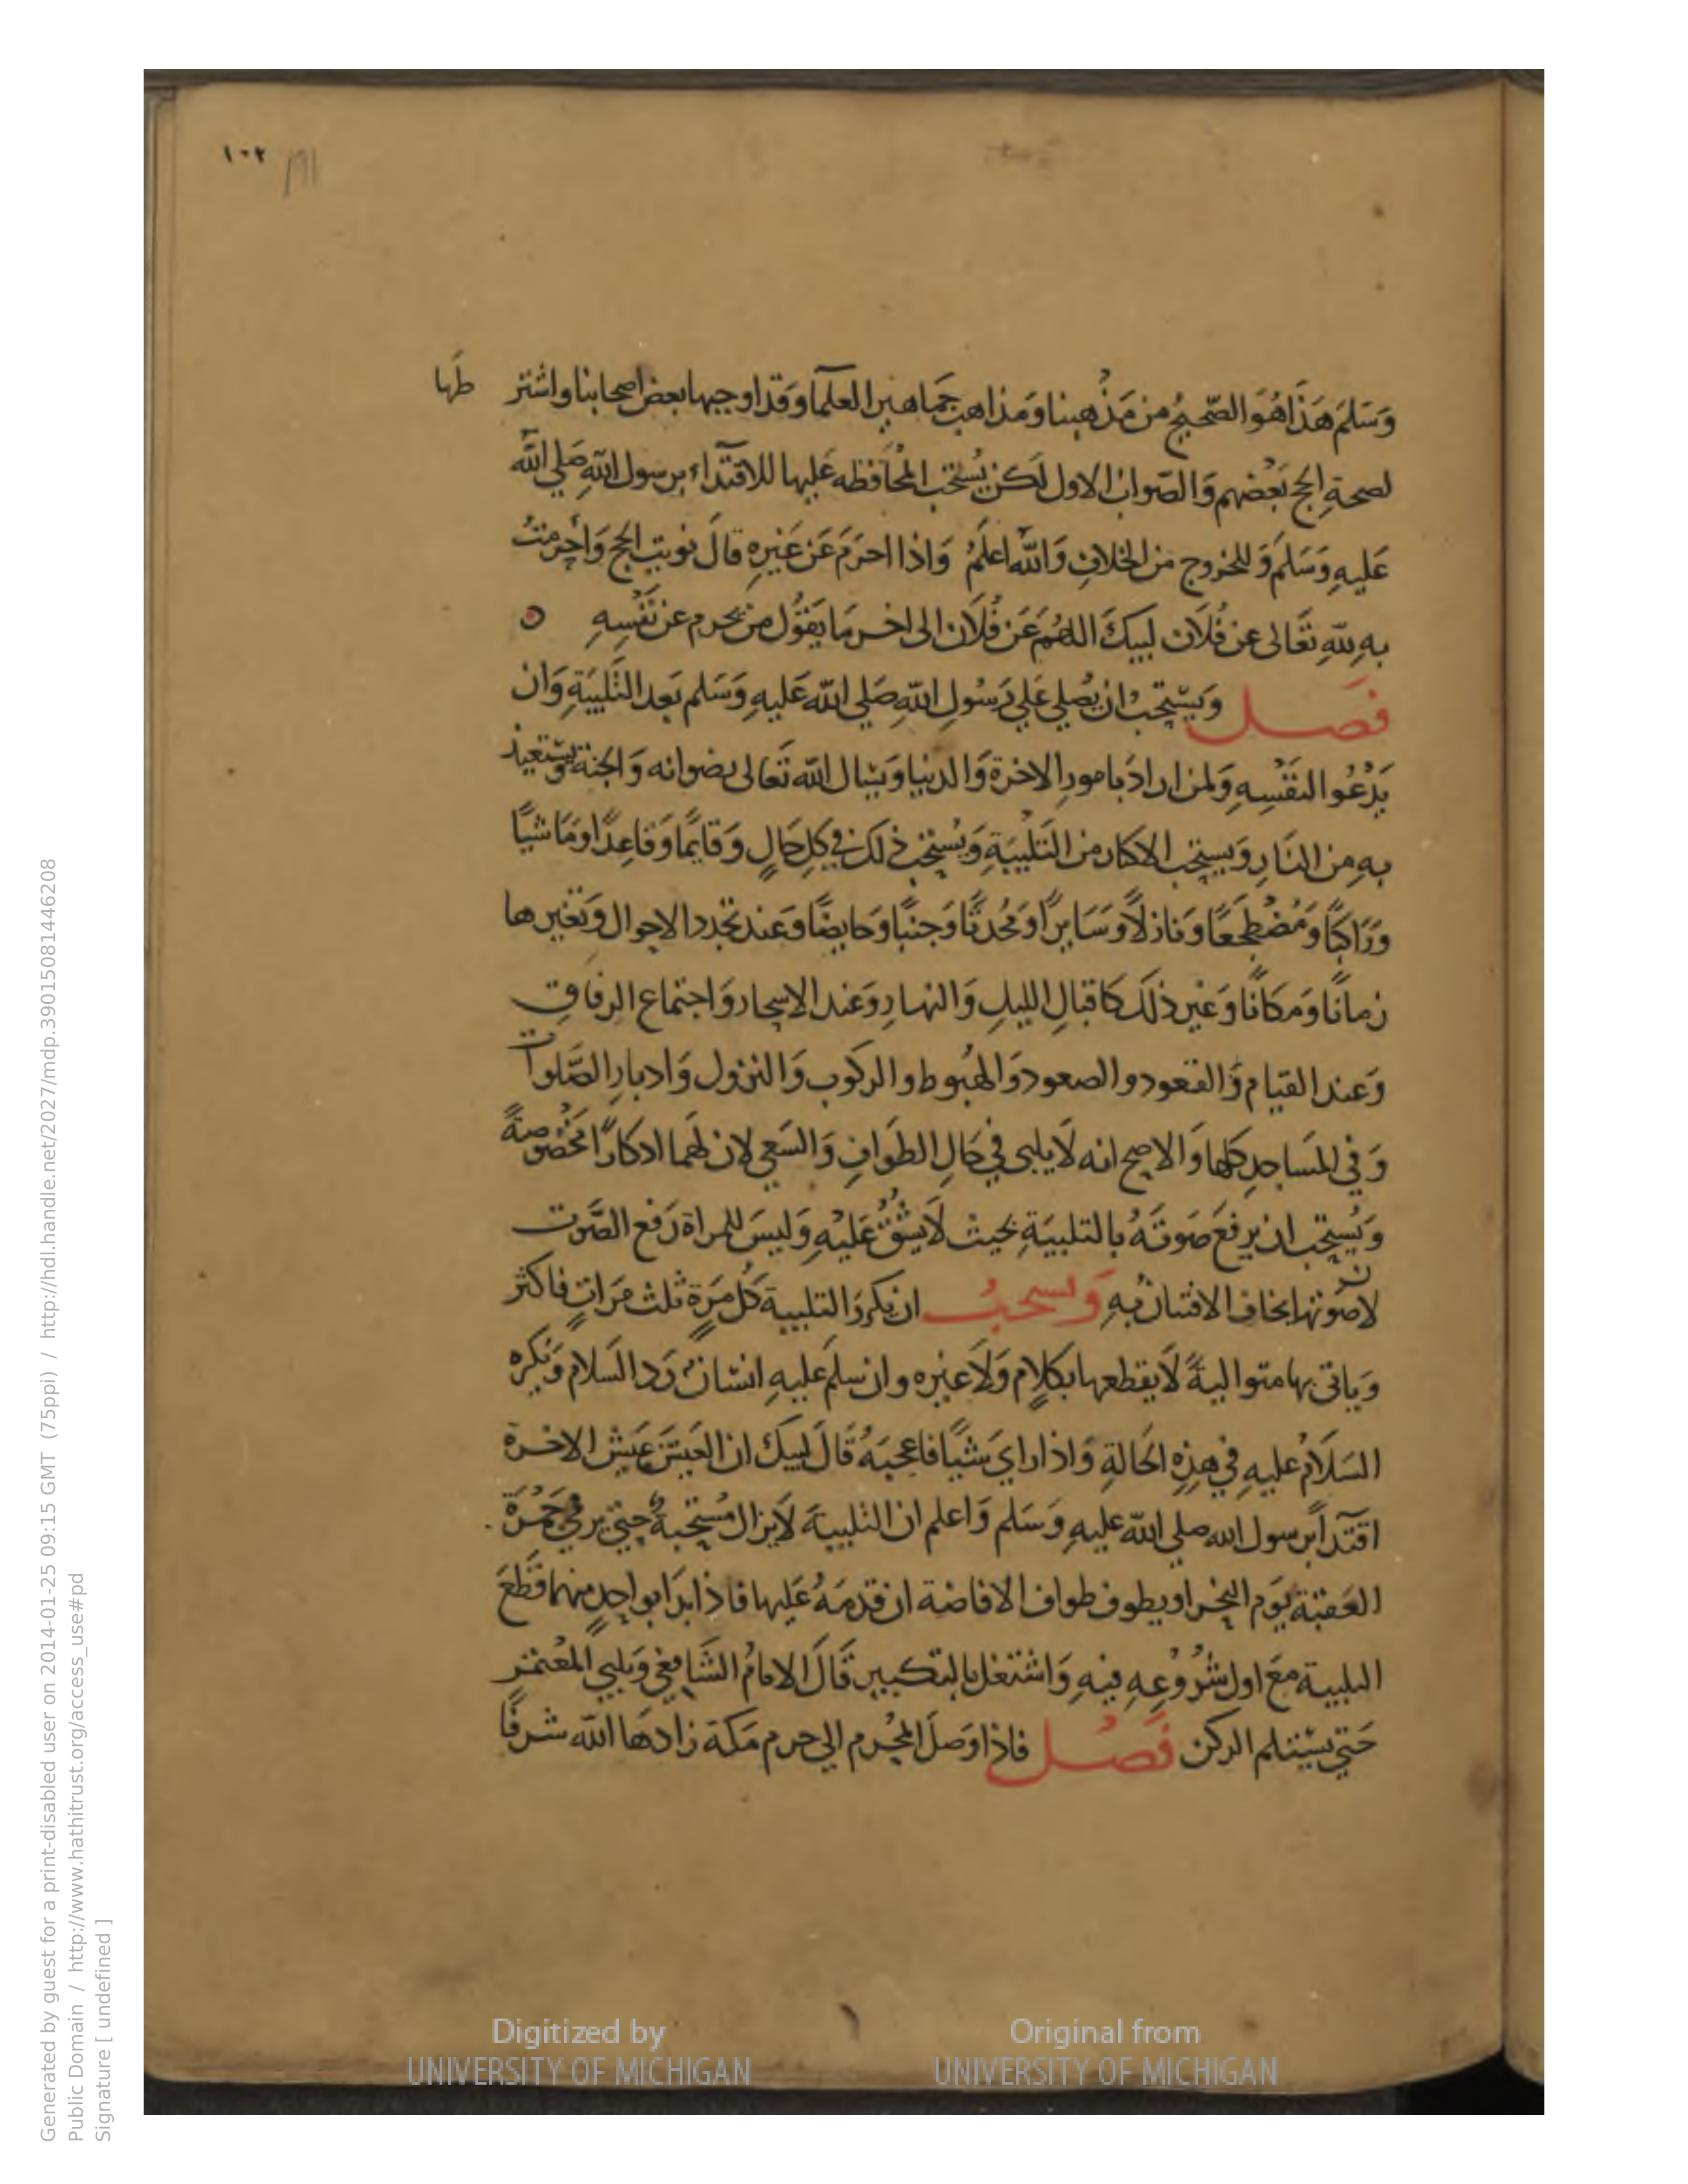 ١٠٢
وَسَلمَ هَذا هُوَ الصّحيحُ من مَذْهبنا وَمَذاهب جَماهير العلمآ وَقد اوجبها بعض اصحابنا واشتر طَها
لصحةِ الحج بَعْضهم وَالصّواب الاول لَكن يُستحَب المُحافظه عَليها للاقتدآء برسول اللهِ صَلي الله
عَليهِ وَسَلمَ وَللخروج من الخلاف وَالله اعلمُ وَاذا احرَمَ عَن غَيرهِ قالَ نويت الحج وَأحرمتُ
بهِ للهِ تعَالى عن فُلاَن لبيكَ اللهُم عَن فُلاَن الى اخر مَا يَقوُل من يحرم عن نَفْسِهِ
فَصل وَيستحب ان يُصلي عَلي رَسُول اللهِ صَلي الله عَليهِ وَسَلم بَعد التَّلبيَةِ وَان
يَدْعُوا لنفَسِهِ وَلمن ارادَ بامورِ الاخرة وَالدنيا وَيسال الله تَعالى رضوانه وَالجنة وَيستعيذ
بهِ من النَارِ وَيستحب الاكثار من التَلبيَةِ وَيُستحَب ذلك في كلِ حَالٍ وَقايمًا وَقاعِدًا وَمَاشيًا
وَرَاكبًا وَمُضْطَجعًا وَنازلاً وَسَايرًا وَمُحْدثًا وَجنبًا وَحايضًا وَعند تجدد الاحوال وَتغيرها
زمانًا وَمكانًا وَغير ذلَك كَاقبالِ الليلِ وَالنهارِ وَعند الاسحار وَاجتماع الرفاقِ
وَعند القيام وَالقعود والصعود وَالهبُوط والركوب وَالنزول وَادبارِ الصَّلوات
وَفي المَساجدِ كلها وَالاصح انه لَا يلبى في حَالِ الطوَافِ وَالسَعي لان لَهما اذكارًا مخصُوصةً
وَيُستحِب ان يرفعَ صَوتَهُ بالتلبيَةِ بحيث لاَ يشُقُ عَليْهِ وَليسَ للمراة رَفع الصَّوت
لان صَوتها يخاف الافتتان بهِ وَيستحبُ ان يكررَ التلبية كلُ مَرَةٍ ثلث مَرَاتٍ فاكثر
وَياتى بها متوالية لَا يقطعها بكلامٍ وَلاَ غيره وان سلمَ عليهِ انسانٌ رَد السَلام وَيكره
السَلاَمُ عليهِ في هذِهِ الحَالةِ وَاذا راي شَيًا فاعجبَهُ قَالَ لبيكَ ان العَيشَ عَيش الاخرة
اقتدآ برسول الله صلي الله عليهِ وَسَلم وَاعلم ان التلبيةَ لاَ يزال مُستحبةً حتي يرمي جَمْرَة
العَقبَة يَوم النحر او يطوف طواف الافاضة ان قدمَهُ عَليها فاذا بدَا بواحدٍ منهما قَطعَ
التلبية مَعَ اول شُرُوعِهِ فيهِ وَاشتغل بالتكبير قَالَ الامامُ الشَافعي وَيلبي المعُتمر
حَتي يستلم الركن فَصْل فاذا وَصلَ المحْرم الى حرم مَكة زادَها الله شرفًا
Digitized by
UNIVERSITY OF MICHIGAN
Original from
UNIVERSITY OF MICHIGAN
Generated by guest for a print-disabled user on 2014-01-25 09:15 GMT (75ppi) / http://hdl.handle.net/2027/mdp.39015081446208
Public Domain / http://www.hathitrust.org/access_use#pd
Signature [ undefined ]